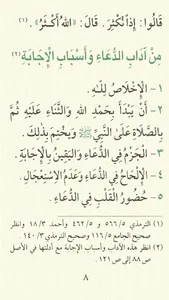 قَالُوا: إِذاً نُكْثِرَ. قَالَ: «اللهُ أَكْثَرُ». (١)
مِنْ آدَابِ الدُّعَاءِ وَأَسْبَابِ الْإِجَابَةِ(٢)
١- الْإِخْلَاصُ لِلَّهِ.
٢- أَنْ يَبْدَأَ بِحَمْدِ اللهِ وَالثَّنَاءِ عَلَيْهِ ثُمَّ
بِالصَّلَاةِ عَلَى النَّبِيِّ ﷺ وَيَخْتِمَ بِذَلِكَ.
٣- الْجَزْمُ فِي الدُّعَاءِ وَالْيَقِينُ بِالْإِجَابَةِ.
٤- الْإِلْحَاحُ فِي الدُّعَاءِ وَعَدَمُ الِاسْتِعْجَالِ.
٥- حُضُورُ الْقَلْبِ فِي الدُّعَاءِ.
(١) الترمذي ٥٦٦/٥ و ٤٦٢/٥ وأحمد ١٨/٣ وانظر
صحيح الجامع ١١٦/٥ وصحيح الترمذي ١٤٠/٣.
(٢) انظر هذه الآداب وأسباب الإجابة مع أدلتها في الأصل
ص ٨٨ إلى ص ١٢١.
٨